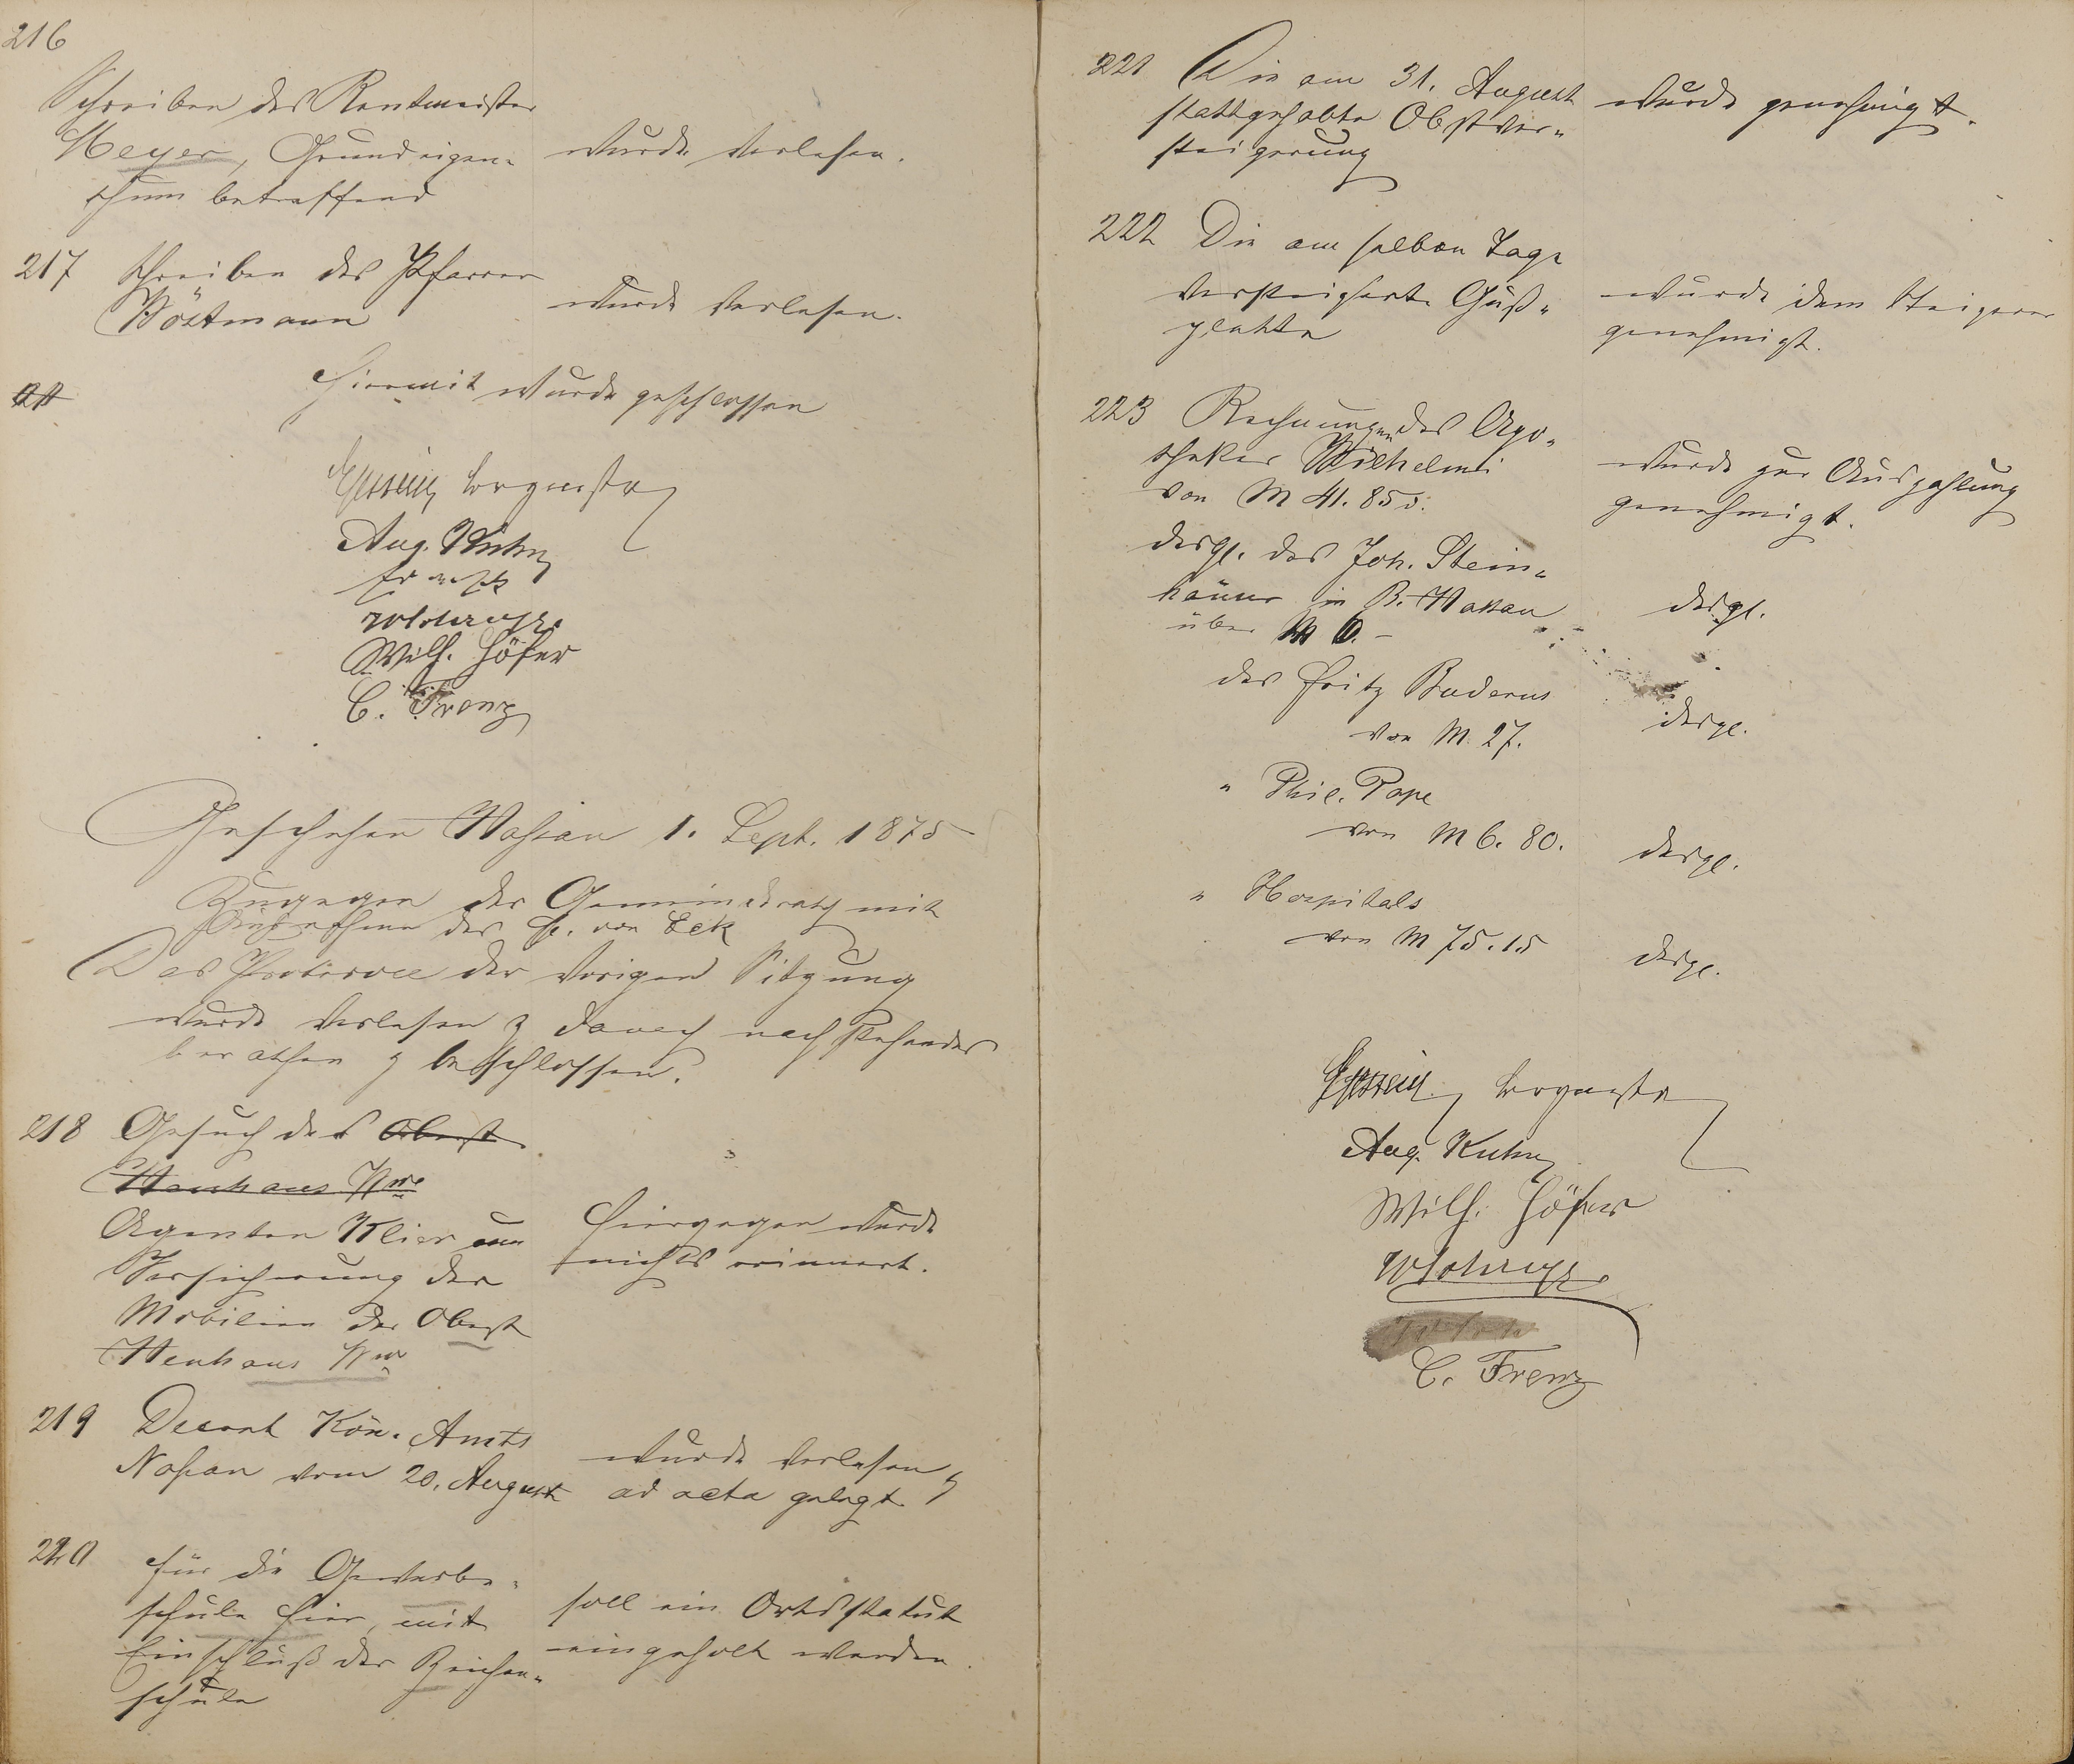 216
Schreiben des Rentmeister
Meyer, Grundeigen-
thum betreffend
wurde verlesen.
217 Schreiben des Pfarrer
Wöstmann
wurde verlesen.
Hiermit wurde geschlossen
Bürgermstr
Aug. Kuhn
Wilh. Höfer
C. Frenz
Geschehen Nassau 1. Sept. 1875
Zugegen der Gemeinderath mit
Ausnahme des H. von Eck
Das Protocoll der vorigen Sitzung
wurde verlesen & danach nachstehendes
berathen & beschlossen.
218 Gesuch des Oberst
Neuhaus Wwe
Agenten Klier um
Versicherung der
Mobilien der Oberst
Neuhaus Wwe
Hiergegen wurde
nichts erinnert.
219 Decret Kön. Amts
Nassau vom 20. August
wurde verlesen &
ad acta gelegt
220 Für die Gewerbe-
schule hier, mit
Einschluß der Zeichen-
schule
soll ein Ortsstatut
eingeholt werden.
221 Die am 31. August
stattgehabte Obstver-
steigerung
wurde genehmigt.
222 Die am selben Tage
versteigerte Guß-
platte
wurde dem Steigerer
genehmigt.
223 Rechnungen des Apo-
theker Wilhelmi
von M 41. 85
wurde zur Auszahlung
genehmigt.
desgl. des Joh. Stein-
häuser in B. Nassau
über M 6. –
desgl.
des Fritz Buderus
von M. 27.
desgl.
" Phil. Pape
von M 6. 80.
desgl.
" Hospitals
von M 75. 15
desgl.
Bürgermstr
Aug. Kuhn
Wilh. Höfer
C. Frenz